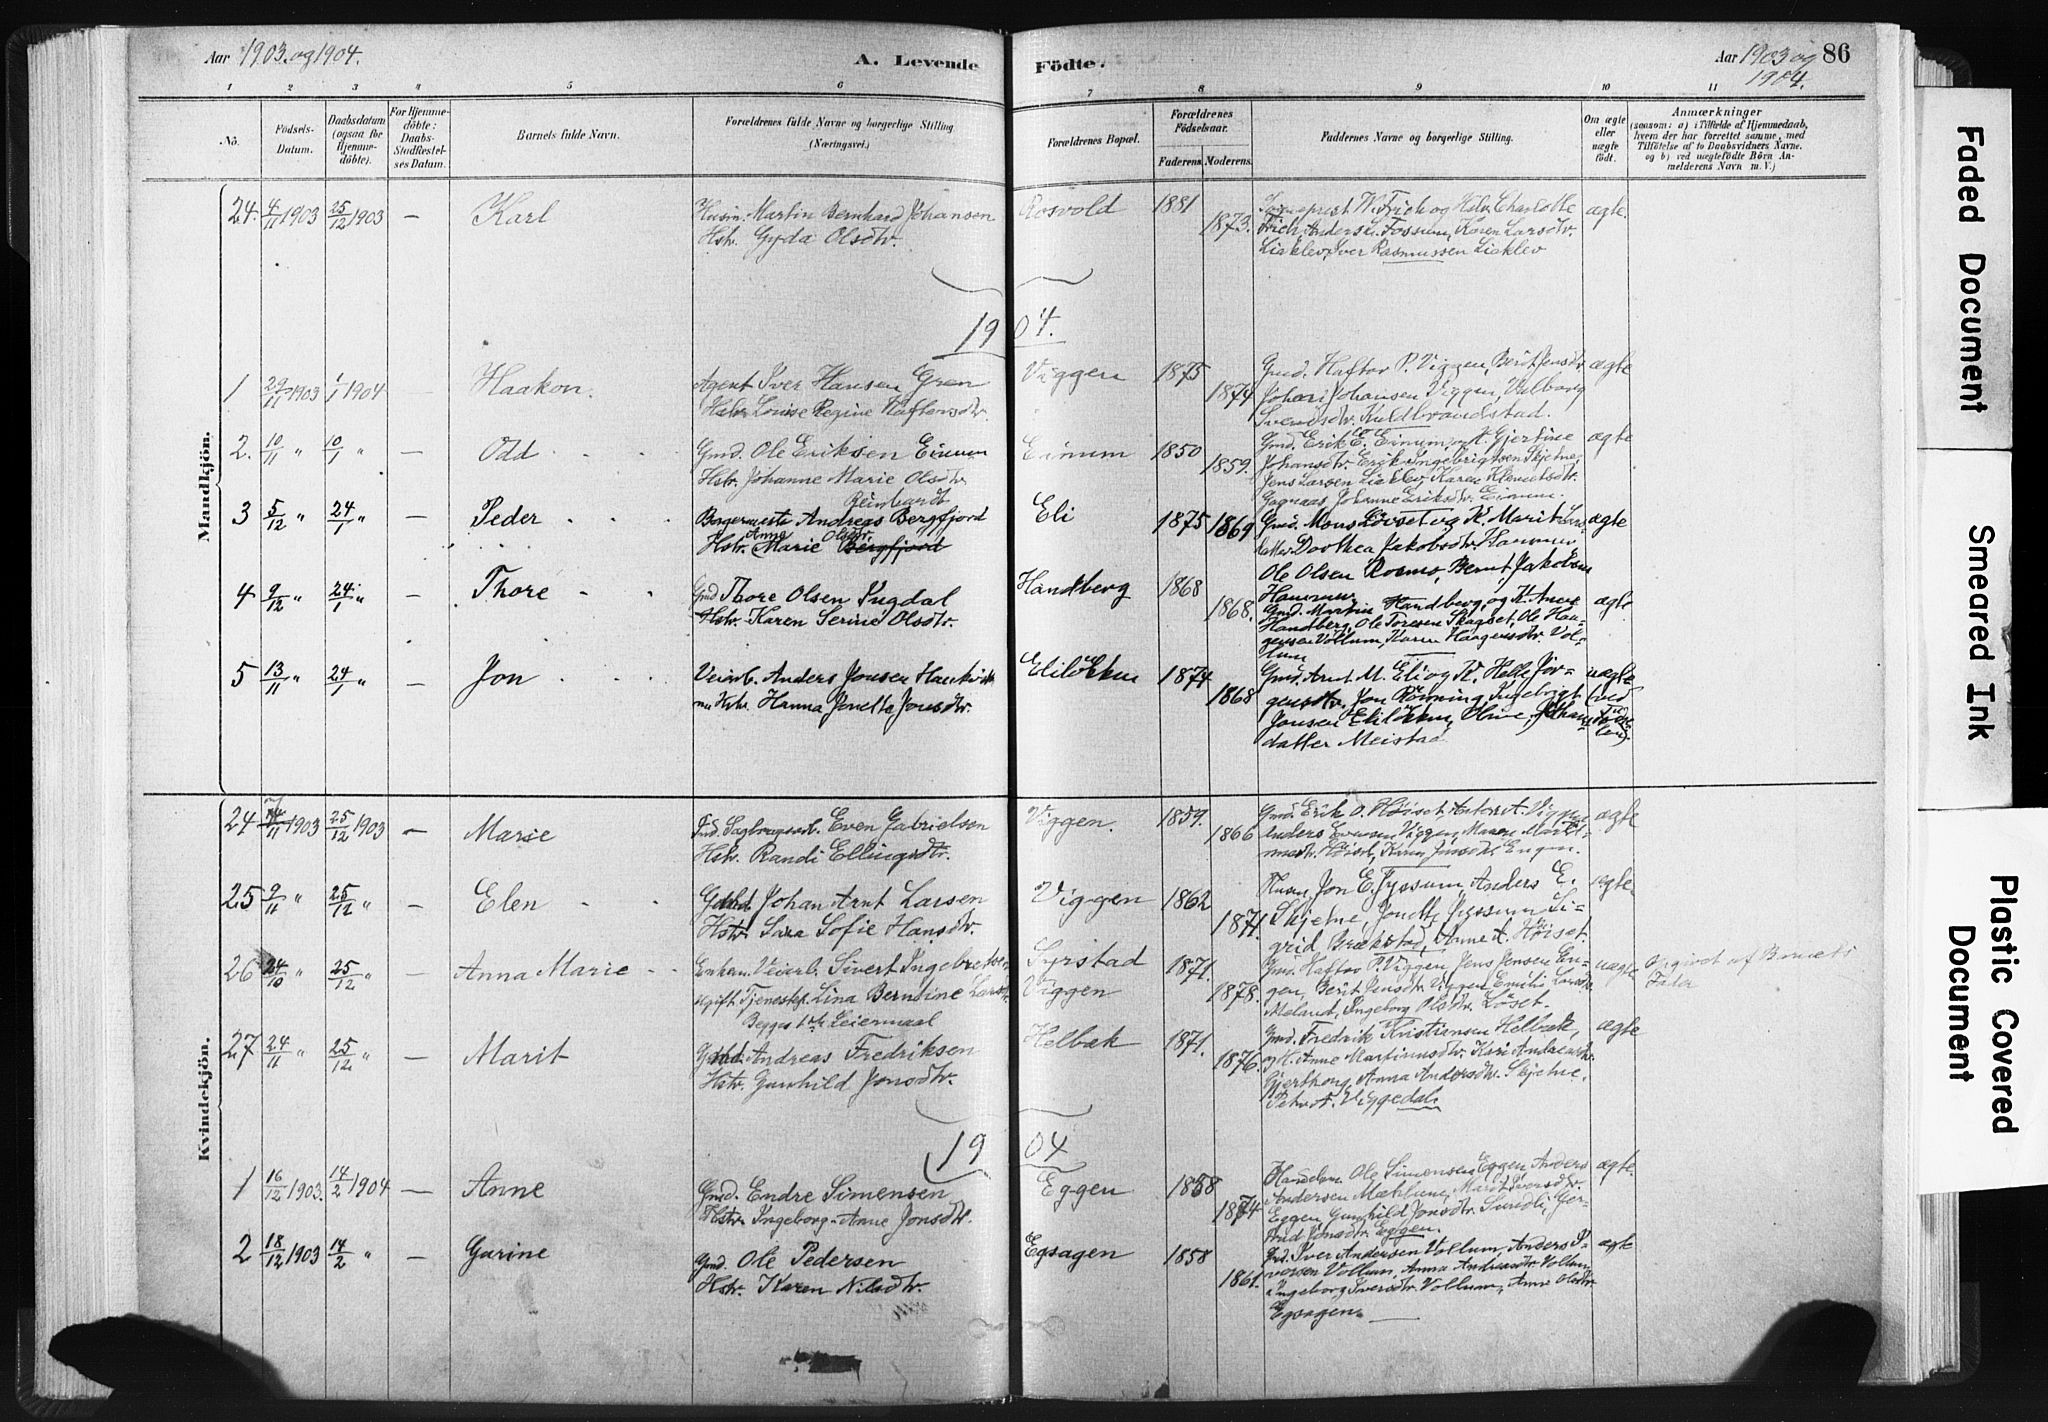 Aar 1903 og 1904.
A. Levende Födte.
Aar 1903 og 1904.
86
1 2 3 4 5 6 7 8 9 10 11
No.
Födsels-Datum.
Daabsdatum (ogsaa for Hjemmedöbte).
For Hjemmedöbte: Daabs-Stadfæstelses Datum.
Barnets fulde Navn.
Forældrenes fulde Navne og borgerlige Stilling (Næringsvei.)
Forældrenes Bopæl.
Forældrenes Födselsaar.
Faderens. Moderens.
Faddernes Navne og borgerlige Stilling.
Om ægte eller uægte födt.
Anmærkninger
(saasom: a) i Tilfælde af Hjemmedaab, hvem der har forrettet samme, med Tilföielse af to Daabsvidners Navne. og b) ved uægtefödte Börn Anmelderens Navn m. V.)
Mandkjön.
24. 4/11 1903 25/12 1903 — Karl
Martin Bernhard Johansen
Hstr. Gyda Olsdtr.
Rosvold 1881 1873.
W. Frich og Charlotte
Frich, Anders L. Fossum, Karen Larsdtr.
Liaklev, Iver Rasmussen Liaklev
ægte.
1904.
1 29/11 1903 1/1 1904 Haakon.
Agent Iver Hansen Gren
Louise Regine Haftorsdtr.
Viggen 1875 1874
Gmd. Haftor P. Viggen, Berit Jensdtr
Johan Johansen Viggen, Valborg
ægte
2. 10/11 " 10/1 " — Odd
Gmd. Ole Eriksen Einum
Hstr. Johanne Marie Olsdtr.
Einum 1850 1859.
Gmd. Erik E. Einum, og K. Gjertine
Johansdtr. Erik Ingebrigtsen Skjetne,
Jens Larsen Liaklev, Karen
Johanne Eriksdtr. Einum.
ægte
3 5/12 " 24/1 " — Peder
Andreas Bergfjord
Hstr. Anne Marie Olsdtr. Bergfjord
Eli 1875 1869
Gmd. Mons Løvset og K. Marit
Dorthea Jakobsdtr. Hammer
Ole Olsen Rosmo, Bernt Jakobsen
Hammer
ægte
4 9/12 " 24/1 " — Thore
Gmd Thore Olsen Sugdal
Hstr. Karen Serine Olsdtr.
Handberg 1868 1868.
Gmd. Martin Handberg, og K. Anne
Handberg, Ole Toresen Skagset, Ole Haa-
gensen Vollum, Karen Haagensdtr. Vol-
lum
ægte
5 13/11 " 24/1 " — Jon
Veiarb. Anders Jonsen
Hanna Jonetta Jonsdtr.
Eliløkken 1874 1868
Gmd. Arnt M. Eli og K. Helle Jør-
gensdtr. Jon Rønning, Ingebrigt
Jonsen Eliløkken, Oline Johans-
datter Meistad
uægte
Kvindekjön.
24 11 1903 25/12 1903 — Marie
Even Gabrielsen
Hstr. Randi Ellingsdtr.
Viggen. 1859. 1866
Gmd. Erik O. Høiset, Viggen
Anders Evensen Viggen, Maren
Høiset, Engen.
ægte
25 9/11 " 25/12 " — Elen
Johan Arnt Larsen
Hstr. Sara Sofie Hansdtr.
Viggen 1862 1871.
Jon E. Jyssum, Anders E.
Skjetne, Jonetta Jyssum Si-
grid Brækstad, Anne A. Høiset.
ægte
26 24/10 " 25/12 " — Anna Marie
Veiarb. Sivert Ingebretsen
ugift Tjenestep. Lina Berntine Larsdtr.
Begges 1ste Leiermaal
Syrstad
Viggen 1871. 1878.
Gmd. Haftor P. Viggen, Jens Jensen En-
gen, Berit Jensdtr. Viggen, Emilie Larsdtr
Meland, Ingeborg Olsdtr. Løset.
uægte
Opgivet af Barnets
Fader
27 24/11 " 25/12 " — Marit
Andreas Fredriksen
Hstr. Gunhild Jonsdtr.
Helbæk 1871. 1876.
Gmd. Fredrik Kristiansen Helbæk,
og K. Anne Martinusdtr. Kari
Anna Andersdtr. Skjetne.
Viggedal.
ægte
1904
1 16/12 1903. 14/2 1904 — Anne
Gmd. Endre Simensen
Hstr. Ingeborg-Anne Jonsdtr.
Eggen 1858 1874
Ole Simensen Eggen, Anders
Andersen Mæhlum, Marit Iversdtr.
Eggen, Gunhild Jonsdtr.
Jonsdtr. Eggen.
ægte
2 18/12 1903 14/2 " — Gurine
Gmd. Ole Pedersen
Hstr. Karen Nilsdtr.
Egsagen 1858 1861.
Gmd. Iver Andersen Vollum, Anders I-
versen Vollum, Anna Andreasdtr. Vollum
Ingeborg Iversdtr. Vollum, Anne Olsdtr.
Egsagen.
ægte
Faded Document
Smeared Ink
Plastic Covered Document